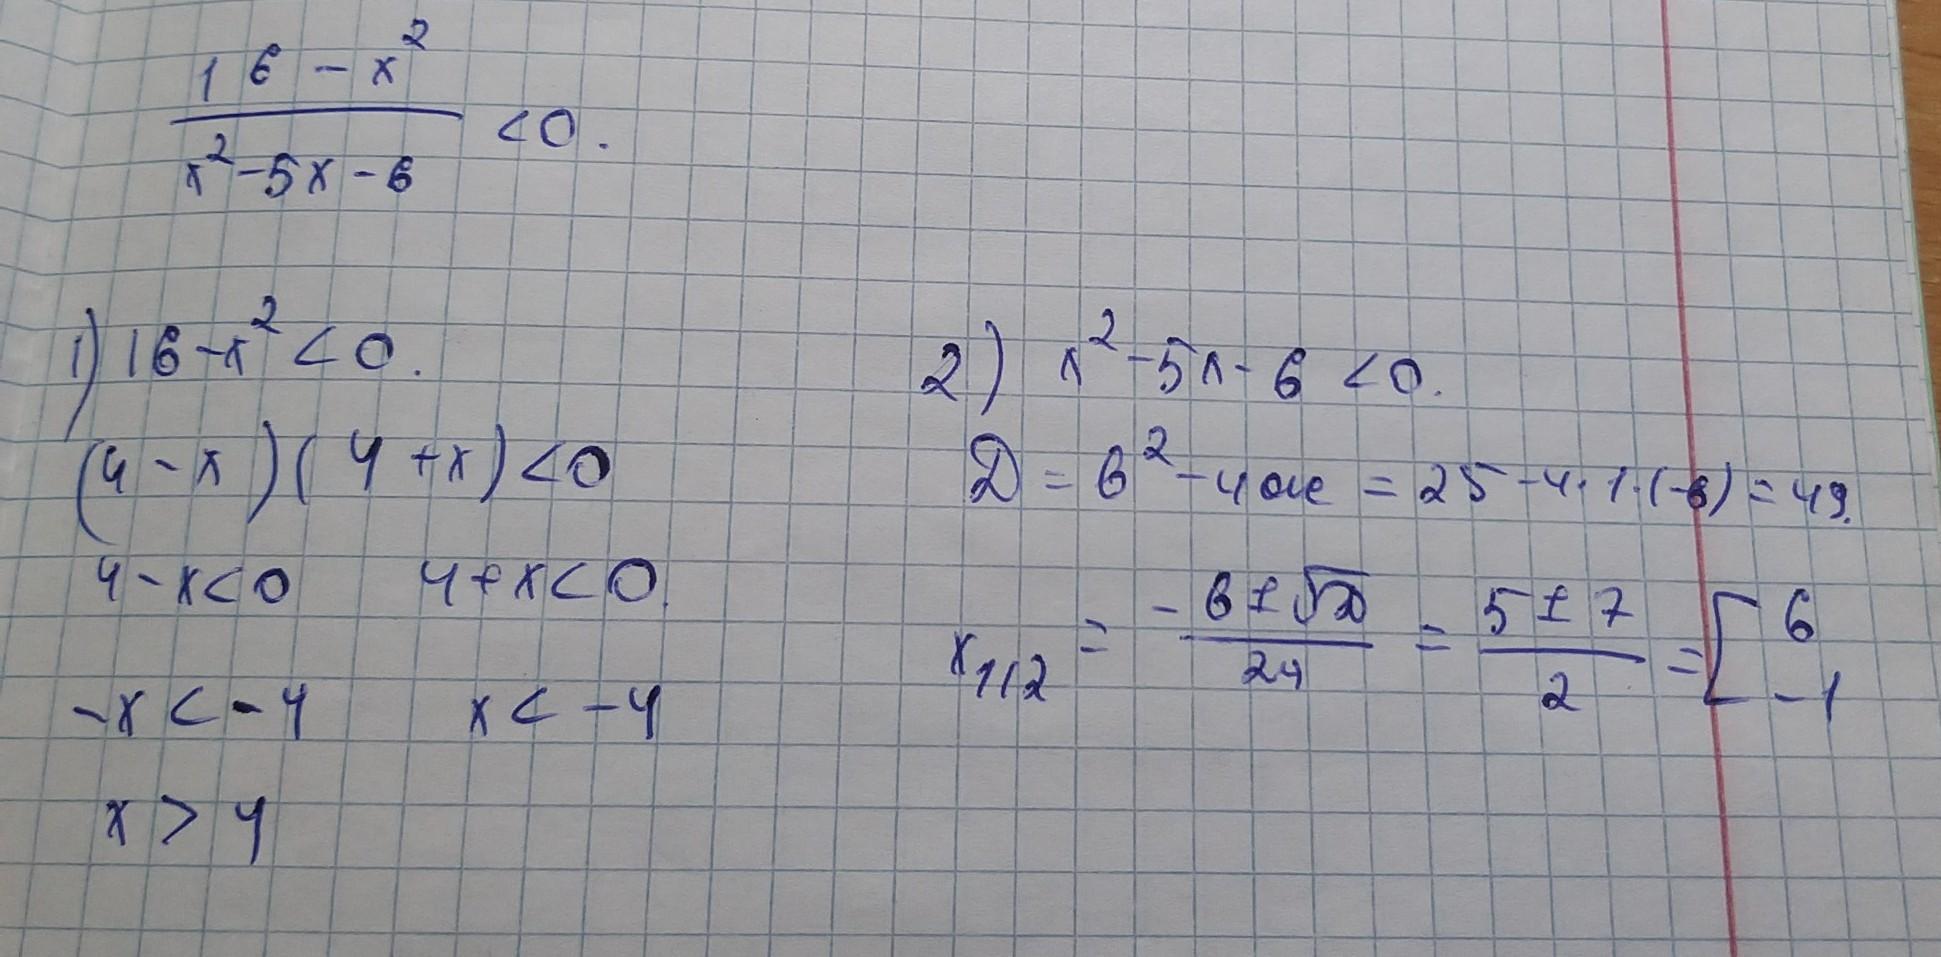 16 - x²
x² - 5x - 6
< 0.
1) 16 - x² < 0.
(4 - x)(4 + x) < 0
4 - x < 0  4 + x < 0.
-x < -4  x < -4
x > 4
2) x² - 5x - 6 < 0.
D = b² - 4ac = 25 - 4·1·(-6) = 49.
x1,2 = (-b ± √D)/2a = (5 ± 7)/2 = [6
-1